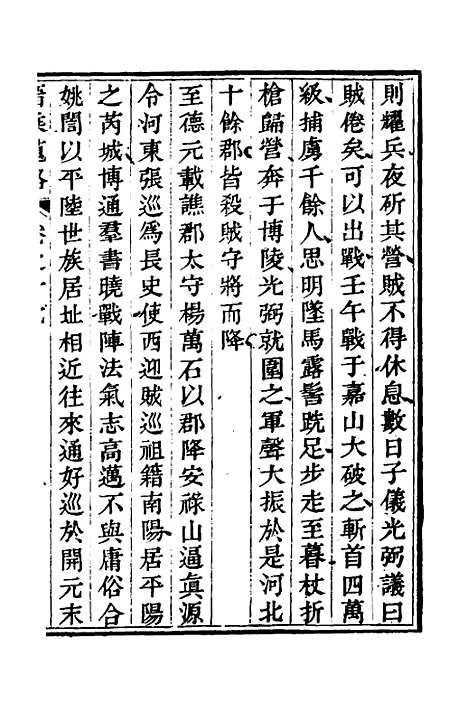 則耀兵夜斫其營賊不得休息數日子儀光弼議曰
賊倦矣可以出戰壬午戰于嘉山大破之斬首四萬
級捕虜千餘人思明墜馬露髻跣足步走至暮杖折
槍歸營奔于博陵光弼就圍之軍聲大振於是河北
十餘郡皆殺賊守將而降
至德元載譙郡太守楊萬石以郡降安祿山逼眞源
令河東張巡爲長史使西迎賊巡祖籍南陽居平陽
之芮城博通羣書曉戰陣法氣志高邁不與庸俗合
姚誾以平陸世族居址相近往來通好巡於開元末